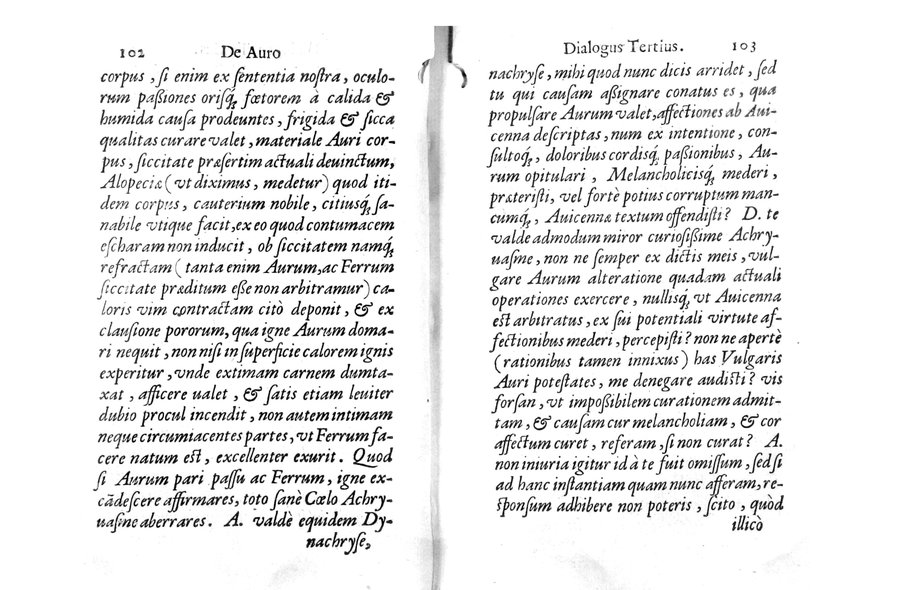 102 De Auro
corpus, ſi enim ex ſententia noſtra, oculo-
rum paßiones oriſq́; fœtorem à calida &
humida cauſa prodeuntes, frigida & ſicca
qualitas curare valet, materiale Auri cor-
pus, ſiccitate præſertim actuali deuinctum,
Alopeciæ (vt diximus, medetur) quod iti-
dem corpus, cauterium nobile, citiuſq́; ſa-
nabile vtique facit, ex eo quod contumacem
eſcharam non inducit, ob ſiccitatem namq́;
refractam (tanta enim Aurum, ac Ferrum
ſiccitate præditum eße non arbitramur) ca-
loris vim contractam citò deponit, & ex
clauſione pororum, qua igne Aurum doma-
ri nequit, non niſi in ſuperficie calorem ignis
experitur, vnde extimam carnem dumta-
xat, afficere ualet, & ſatis etiam leuiter
dubio procul incendit, non autem intimam
neque circumiacentes partes, vt Ferrum fa-
cere natum eſt, excellenter exurit. Quod
ſi Aurum pari paſſu ac Ferrum, igne ex-
cãdeſcere affirmares, toto ſanè Cœlo Achry-
uaſine aberrares. A. valdè equidem Dy-
nachryſe,
Dialogus Tertius. 103
nachryſe, mihi quod nunc dicis arridet, ſed
tu qui cauſam aßignare conatus es, qua
propulſare Aurum valet, affectiones ab Aui-
cenna deſcriptas, num ex intentione, con-
ſultoq́;, doloribus cordiſq́; paßionibus, Au-
rum opitulari, Melancholiciſq́; mederi,
præteriſti, vel fortè potius corruptum man-
cumq́;, Auicennæ textum offendiſti? D. te
valde admodum miror curioſißime Achry-
uaſme, non ne ſemper ex dictis meis, vul-
gare Aurum alteratione quadam actuali
operationes exercere, nulliſq́; vt Auicenna
eſt arbitratus, ex ſui potentiali virtute af-
fectionibus mederi, percepiſti? non ne apertè
(rationibus tamen innixus) has Vulgaris
Auri poteſtates, me denegare audiſti? vis
forſan, vt impoßibilem curationem admit-
tam, & cauſam cur melancholiam, & cor
affectum curet, referam, ſi non curat? A.
non iniuria igitur id à te fuit omiſſum, ſed ſi
ad hanc inſtantiam quam nunc afferam, re-
ſponſum adhibere non poteris, ſcito, quòd
illicò